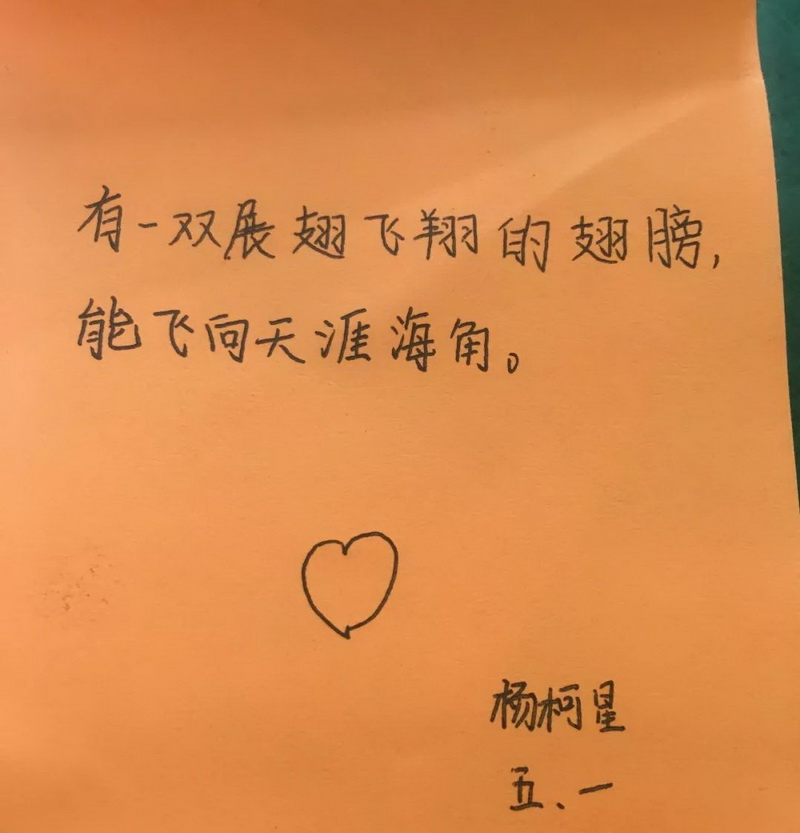 有一双展翅飞翔的翅膀，
能飞向天涯海角。
杨柯星
五、一